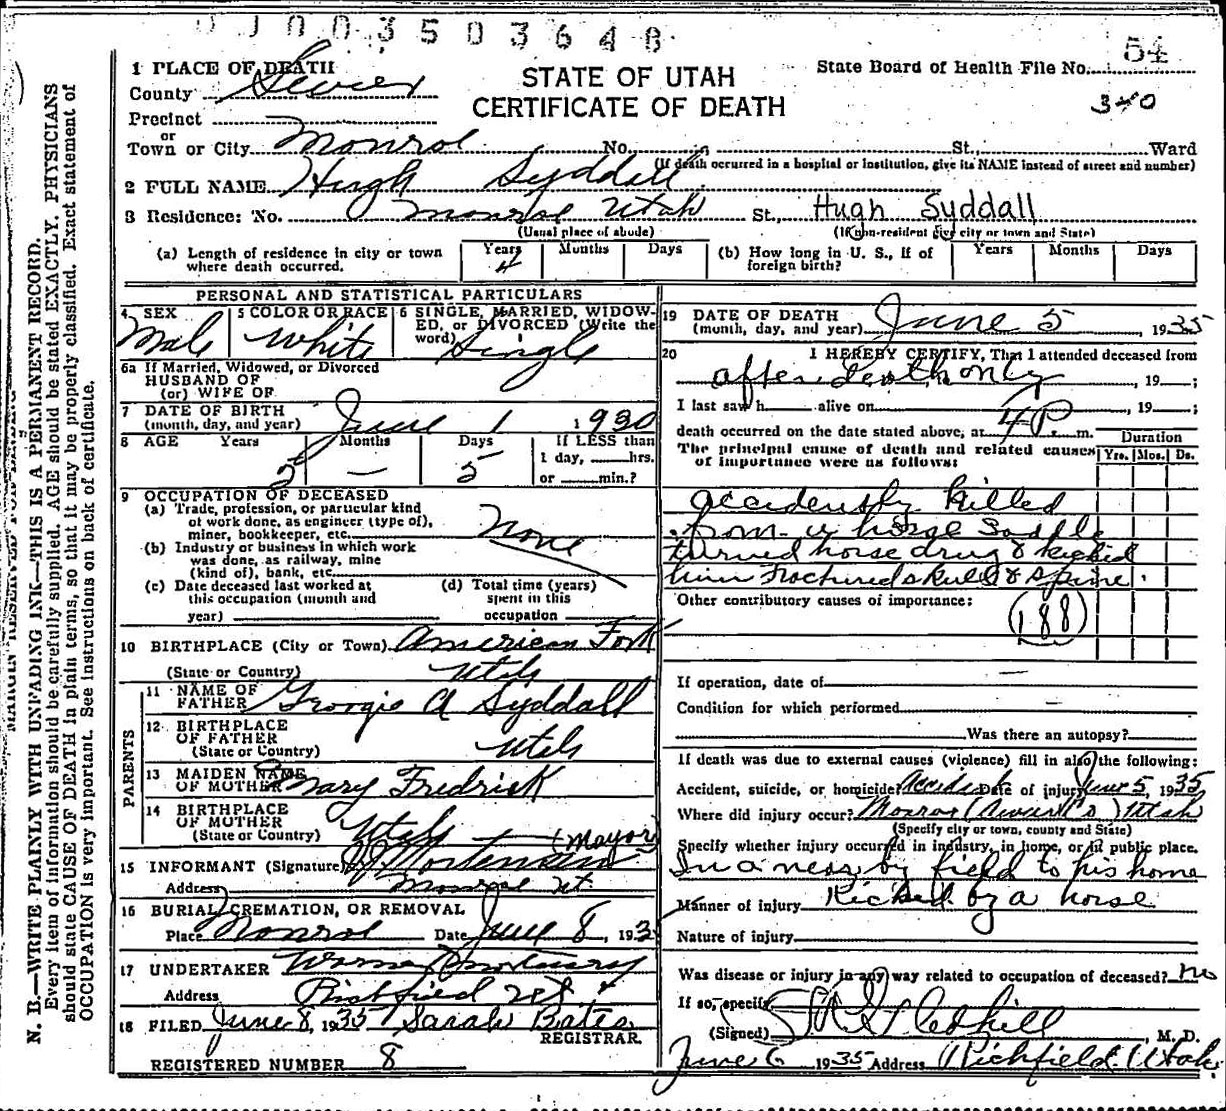 0 1 0 0 3 5 0 3 6 4 8
54
1 PLACE OF DEATH
County Sevier
STATE OF UTAH
CERTIFICATE OF DEATH
State Board of Health File No.
340
Precinct
or
Town or City Monroe No. St. Ward
(If death occurred in a hospital or institution, give its NAME instead of street and number)
2 FULL NAME Hugh Syddall
3 Residence: No. Monroe Utah St., Hugh Syddall
(Usual place of abode) (If non-resident give city or town and State)
(a) Length of residence in city or town where death occurred. Years 4 Months Days (b) How long in U. S., if of foreign birth? Years Months Days
PERSONAL AND STATISTICAL PARTICULARS
4 SEX Male
5 COLOR OR RACE White
6 SINGLE, MARRIED, WIDOWED, or DIVORCED (Write the word) Single
6a If Married, Widowed, or Divorced
HUSBAND OF
(or) WIFE OF
7 DATE OF BIRTH
(month, day, and year) June 1 1930
8 AGE Years 5 Months — Days 5 If LESS than
1 day, hrs.
or min.?
9 OCCUPATION OF DECEASED
(a) Trade, profession, or particular kind
of work done, as engineer (type of),
miner, bookkeeper, etc. None
(b) Industry or business in which work
was done, as railway, mine
(kind of), bank, etc.
(c) Date deceased last worked at
this occupation (month and
year)
(d) Total time (years)
spent in this
occupation
10 BIRTHPLACE (City or Town) American Fork
(State or Country) Utah
PARENTS
11 NAME OF
FATHER George A Syddall
12 BIRTHPLACE
OF FATHER
(State or Country) Utah
13 MAIDEN NAME
OF MOTHER Mary Fredrick
14 BIRTHPLACE
OF MOTHER
(State or Country) Utah (Mayor)
15 INFORMANT (Signature) Mortensen
Address Monroe Ut.
16 BURIAL, CREMATION, OR REMOVAL
Place Monroe Date June 8, 1935
17 UNDERTAKER
Address Richfield
18 FILED June 8, 1935 Sarah Bates
REGISTRAR.
REGISTERED NUMBER 8
19 DATE OF DEATH
(month, day, and year) June 5 1935
20 I HEREBY CERTIFY, That I attended deceased from
after death only, 19 ;
I last saw h alive on , 19 ;
death occurred on the date stated above, at 4 P. m.
The principal cause of death and related causes
of importance were as follows:
Duration
Yrs. Mos. Ds.
accidently killed
from a horse saddle
turned horse drug & kicked
him Fractured skull & spine
Other contributory causes of importance:
188
If operation, date of —
Condition for which performed —
Was there an autopsy?
If death was due to external causes (violence) fill in also the following:
Accident, suicide, or homicide? Accident Date of injury June 5, 1935
Where did injury occur? Monroe Utah
(Specify city or town, county and State)
Specify whether injury occurred in industry, in home, or in public place.
In a near by field to his home
Manner of injury Kicked by a horse
Nature of injury
Was disease or injury in any way related to occupation of deceased? no
If so, specify
(Signed) , M. D.
June 6 1935 Address Richfield Utah
MARGIN RESERVED FOR BINDING
N. B.—WRITE PLAINLY WITH UNFADING INK—THIS IS A PERMANENT RECORD.
Every item of information should be carefully supplied. AGE should be stated EXACTLY. PHYSICIANS
should state CAUSE OF DEATH in plain terms, so that it may be properly classified. Exact statement of
OCCUPATION is very important. See instructions on back of certificate.